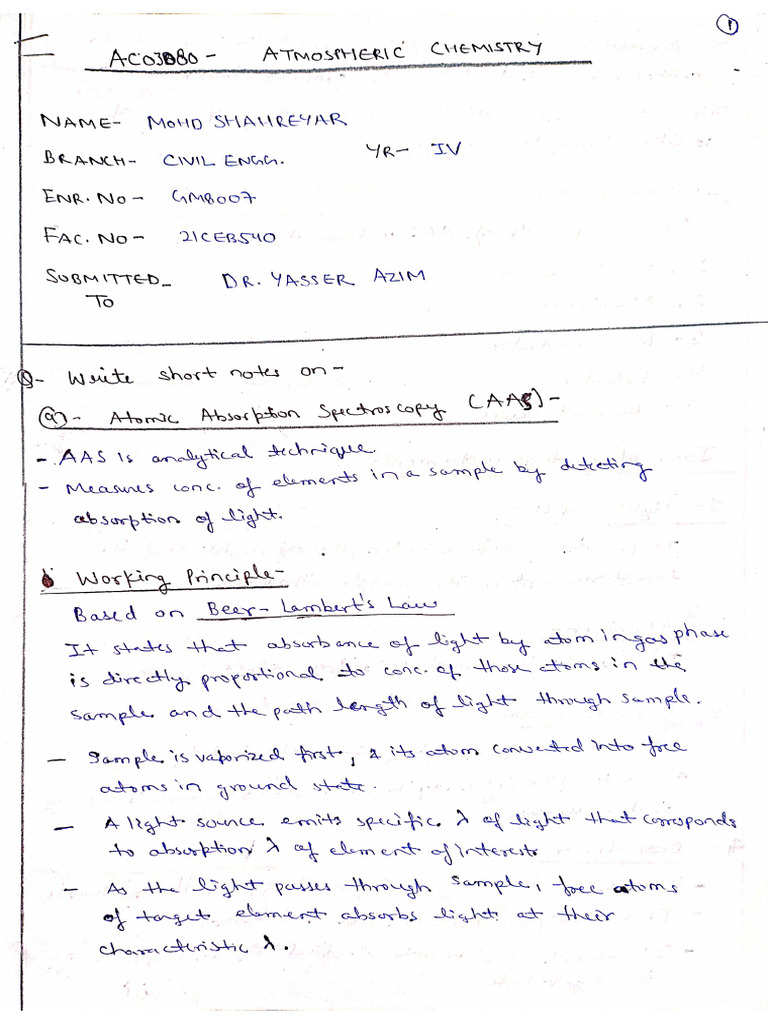 1
ACO3080 - ATMOSPHERIC CHEMISTRY
NAME- MOHD SHAHREYAR
BRANCH- CIVIL ENGG. YR- IV
ENR. NO - GM8007
FAC. NO - 21CEB540
SUBMITTED - DR. YASSER AZIM
TO
Q- Write short notes on -
(a) - Atomic Absorption Spectroscopy (AAS) -
- AAS is analytical technique.
- Measures conc. of elements in a sample by detecting
absorption of light.
Working Principle -
Based on Beer-Lambert's Law
It states that absorbance of light by atom in gas phase
is directly proportional to conc. of those atoms in the
sample and the path length of light through sample.
- Sample is vaporized first, & its atom converted into free
atoms in ground state.
- A light source emits specific λ of light that corresponds
to absorption λ of element of interest.
- As the light passes through sample, free atoms
of target element absorbs light at their
characteristic λ.